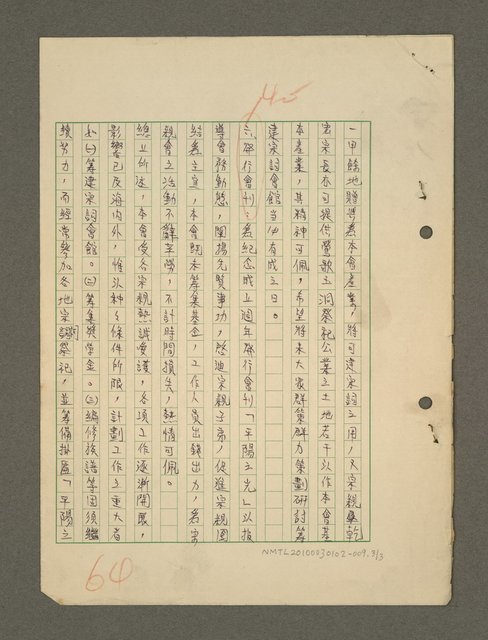 一甲餘地贈與為本會產業，將可建宗祠之用，又宗親乾
宗長亦可提供鶯歌之洞祭祀公業之土地若干以作本會基
本產業，其精神可佩，希望將來大家群策群力策劃研討籌
建宗祠會館當必有成之日。
六、發行會刊：為紀念成立週年發行會刊「平陽之光」以報
導會務動態，闡揚先賢事功，啟迪宗親子弟，促進宗親團
結為主宜，本會既未籌集基金，工作人員出錢出力，為宗
親會之活動不辭辛勞，不計時間損失，熱情可佩。
總上所述，本會受各宗親熱誠愛護，各項工作逐漸開展，
影響已及海內外，惟以種々條件所限，計劃工作之重大者
如㈠籌建宗祠會館。㈡籌集獎學金。㈢編修族譜等固須繼
續努力，而經常參加各地宗祠祭祀，並籌備掛匾「平陽之
45
60
NMTL20100030102-009.3/3